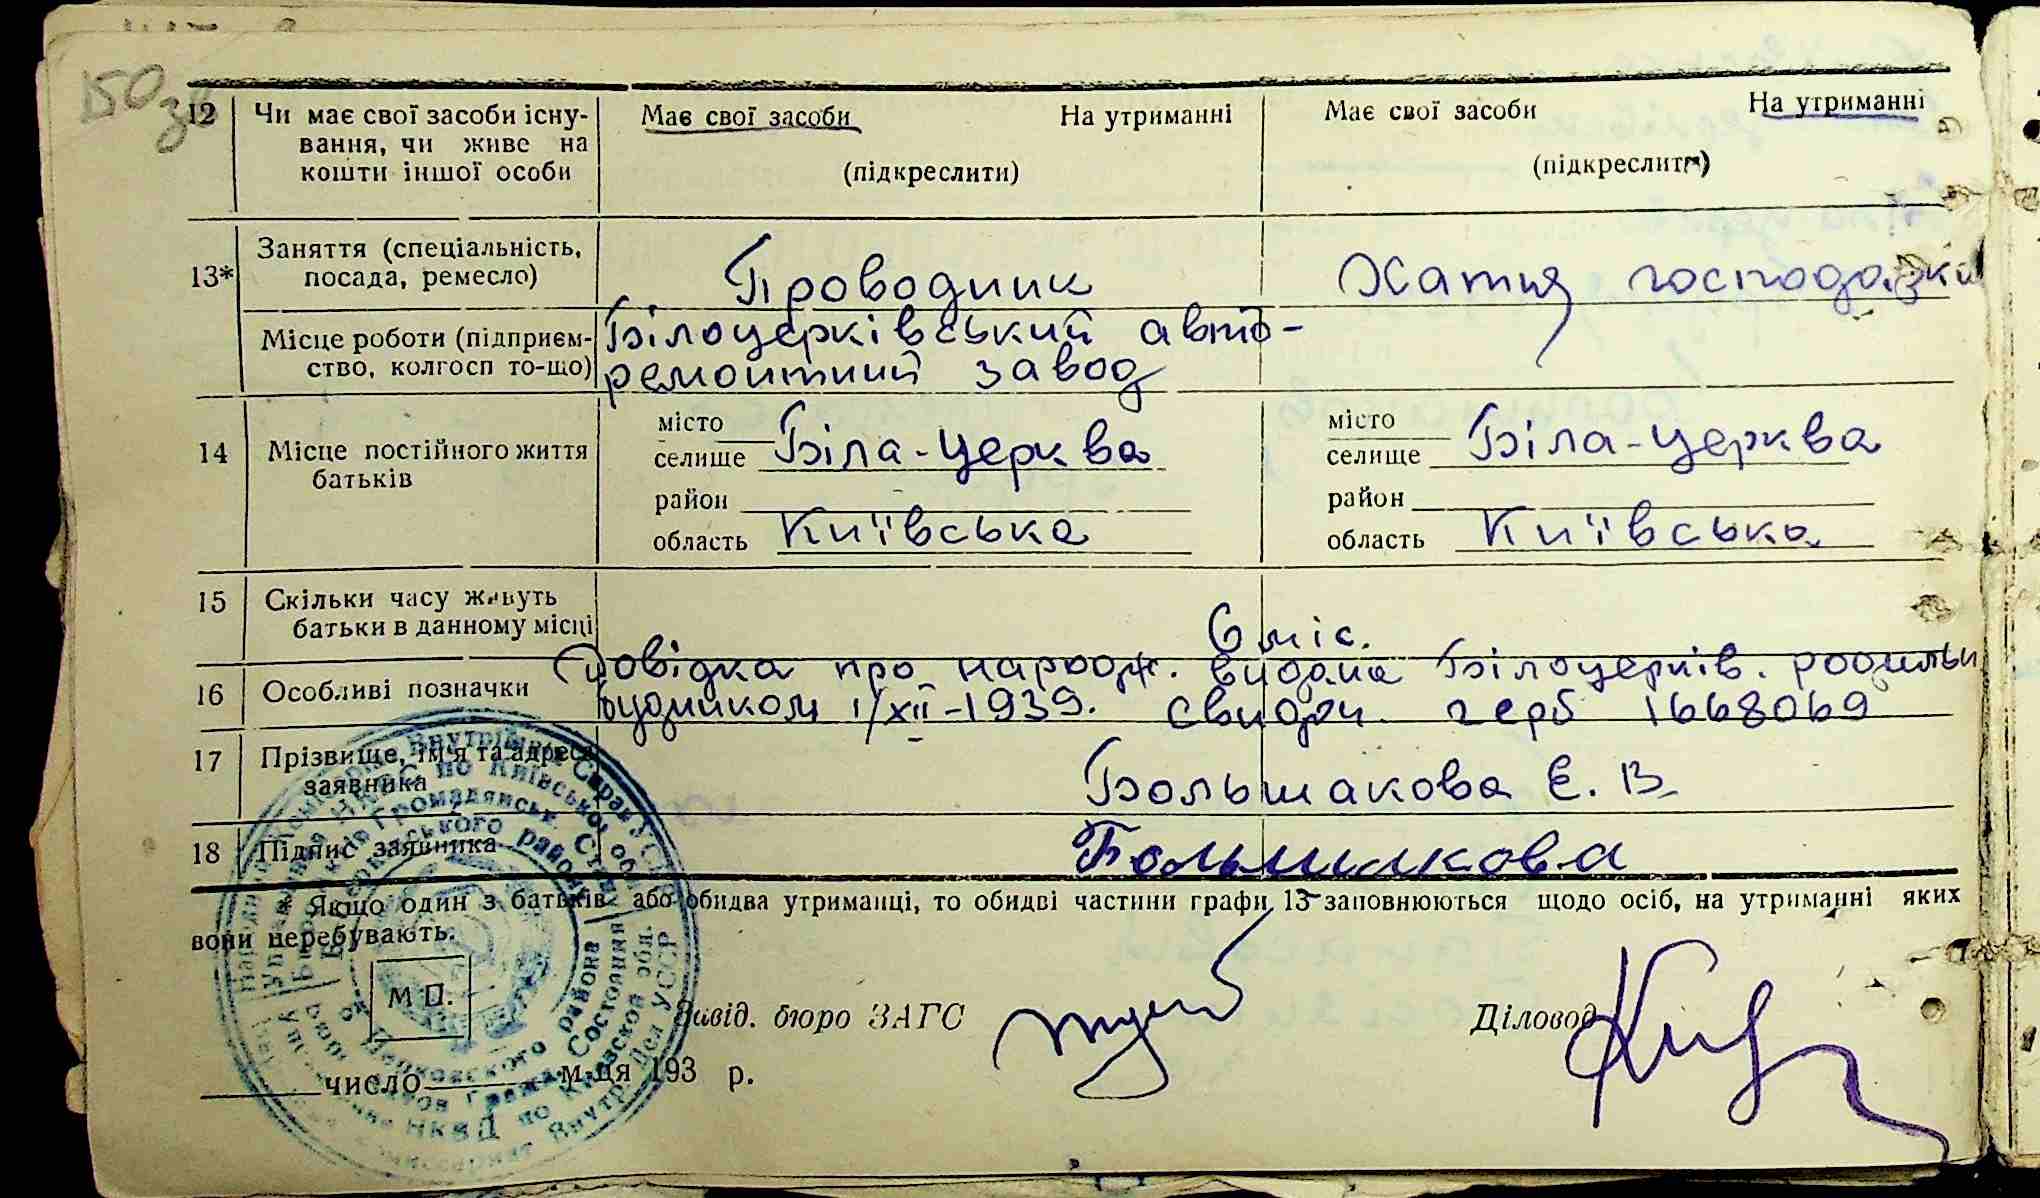 150зв
12 Чи має свої засоби існу-
вання, чи живе на
кошти іншої особи
Має свої засоби На утриманні
(підкреслити)
Має свої засоби На утриманні
(підкреслити)
13* Заняття (спеціальність,
посада, ремесло)
Проводник
Хатня господарка
Місце роботи (підприєм-
ство, колгосп то-що)
Білоцерківський авто-
ремонтний завод
14 Місце постійного життя
батьків
місто
селище Біла-Церква
район
область Київська
місто
селище Біла-Церква
район
область Київська
15 Скільки часу живуть
батьки в данному місці
6 міс.
16 Особливі позначки
Довідка про народж. видана Білоцерків. родильн
будинком 1/XII-1939. свидоч. герб 1668069
17 Прізвище, ім'я та адреса
заявника
Большакова Є. В.
18 Підпис заявника
Большакова
* Якщо один з батьків або обидва утриманці, то обидві частини графи 13 заповнюються щодо осіб, на утриманні яких
вони перебувають.
М П.
Завід. бюро ЗАГС
Діловод
число м-ця 193 р.